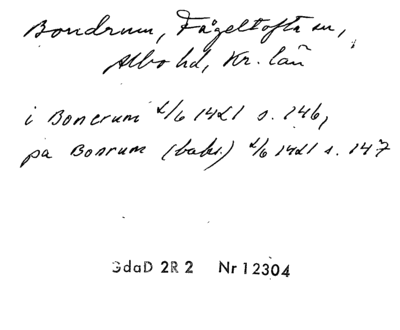 Bondrum, Fågeltofta sn,
Albo hd, Kr. län
i Boncrum 2/6 1421 s. 146,
pa Bonrum (baks.) 2/6 1421 s. 147
GdaD 2R 2 Nr 12304